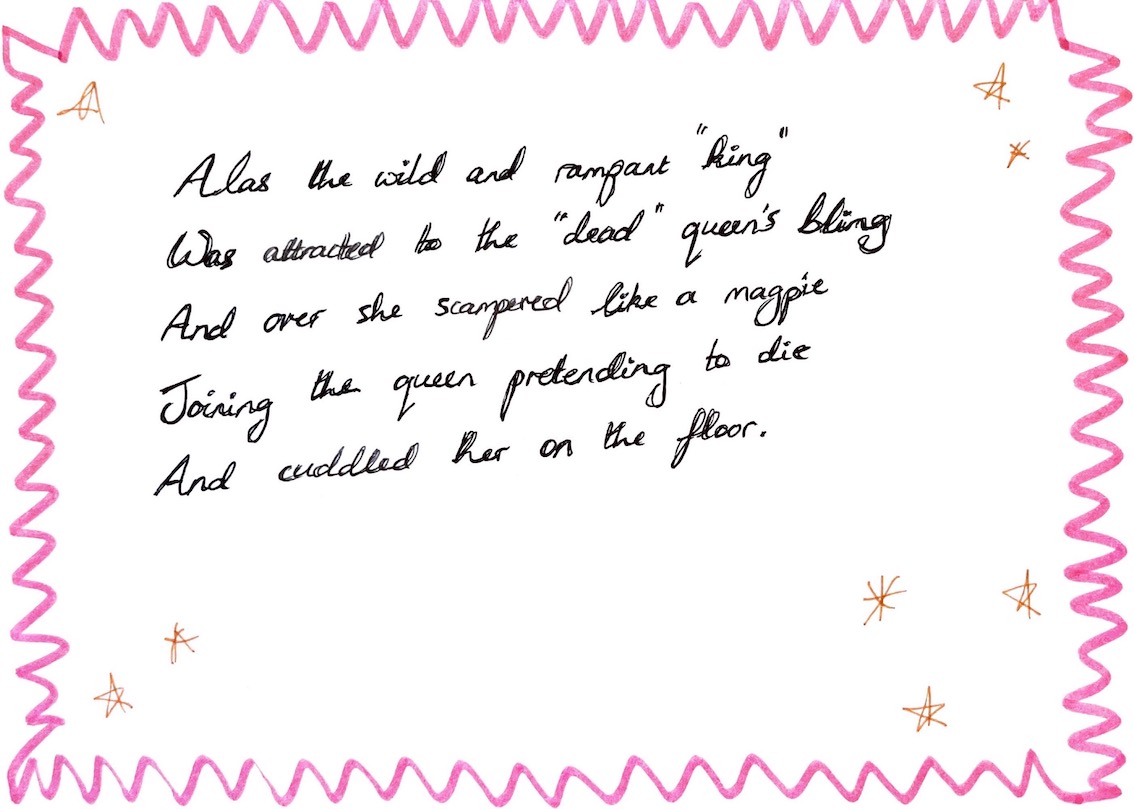 Alas the wild and rampant "king"
Was attracted to the "dead" queen's bling
And over she scampered like a magpie
Joining the queen pretending to die
And cuddled her on the floor.